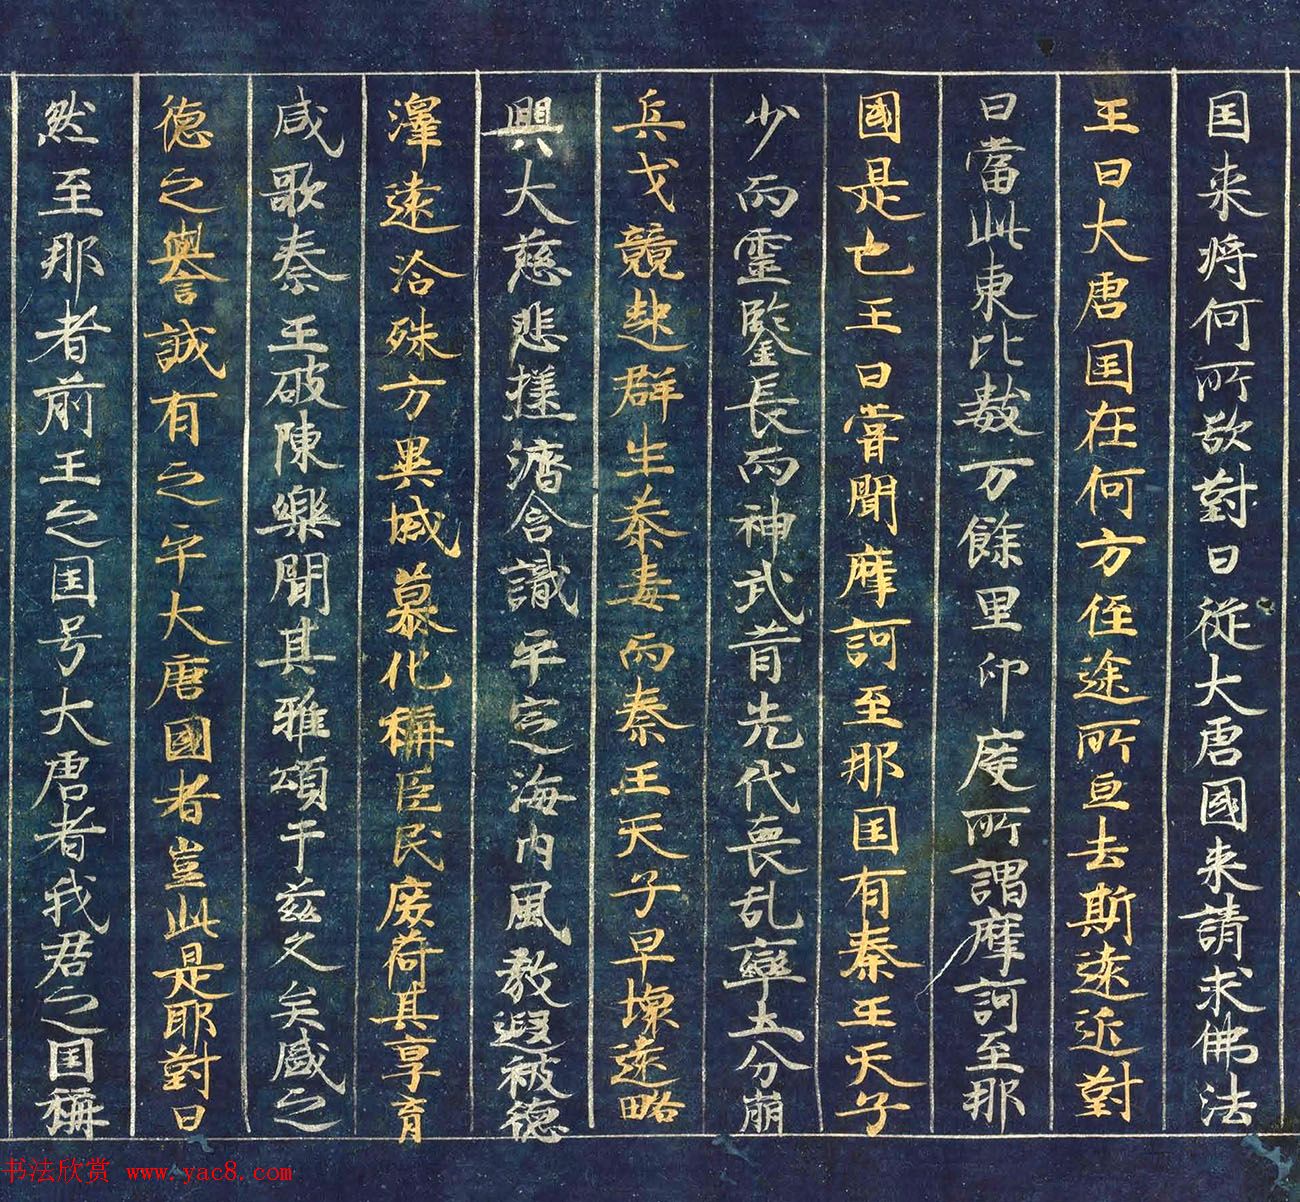 国来将何所欲對曰從大唐國来請求佛法
王曰大唐国在何方侄途所亘去斯遠近對
曰當此東北數万餘里印度所謂摩訶至那
國是也王曰甞聞摩訶至那国有秦王天子
少而靈鑒長而神武昔先代喪乱率土分崩
兵戈競起群生荼毒而秦王天子早懷遠略
興大慈悲拯濟含識平定海内風教遐被德
澤遠洽殊方異域慕化稱臣民庶荷其亭育
咸歌秦王破陳樂聞其雅頌于兹久矣盛之
德之譽誠有之乎大唐國者豈此是耶對曰
然至那者前王之国号大唐者我君之国稱
书法欣赏 www.yac8.com